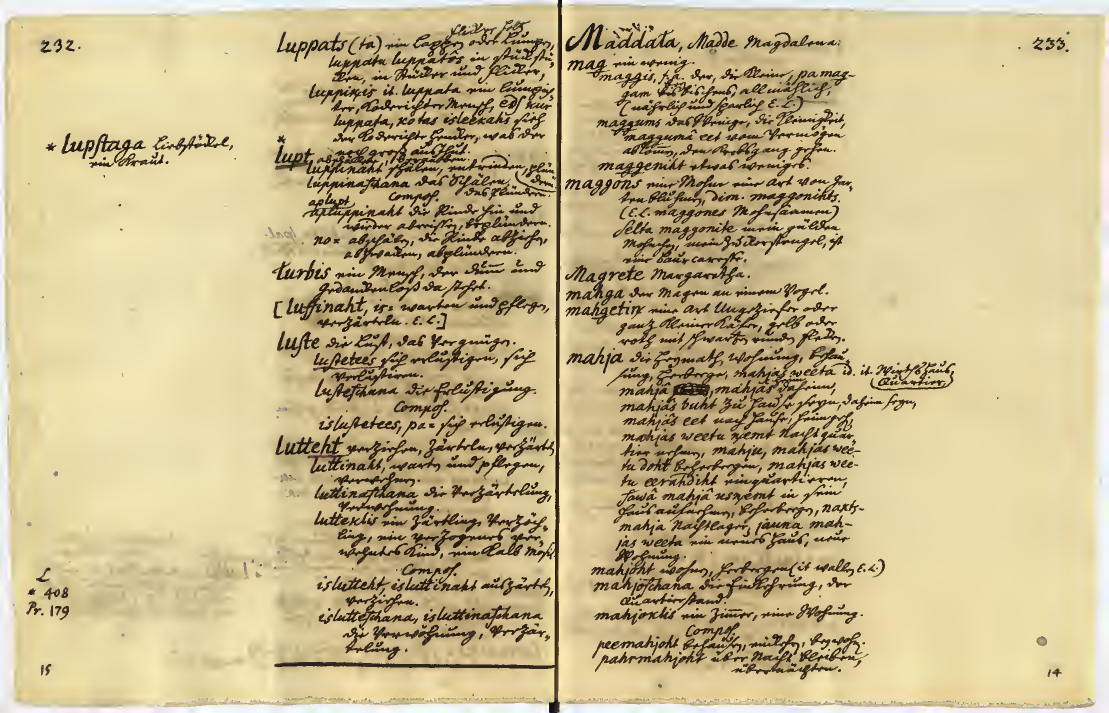 232.
flicker fetz
luppats (ta) ein Lappen oder Lumpe,
luppatu luppatôs in stückstü-
cken, in Stücker und flicker,
luppixis it. luppata ein lumpich-
ter, Koderichter Mensch, eds kur
luppata, kotas isleekahs sich
der Koderichte Henker, was der
noch groß aufthut.
* lupstaga Liebstöckel,
ein Kraut.
*
lupt
luppinaht schälen, entrinden, plün
dern.
luppinaschana das Schälen, das Plündern.
aplupt Compos.
apluppinaht die Rinde hin und
wieder abreissen, beplündern.
no= abschälen, die Rinde abziehen,
abplündern.
lurbis ein Mensch, der dum und
gedankenloß da stehet.
[lussinaht, is= warten und pflegen,
verzärteln. E.L.]
luste die Lust, das Vergnügen.
lustetees sich erlustigen, sich
verlustiren.
lusteschana die Erlustigung.
Compos.
islustetees, pa= sich erlustigen.
lutteht verziehen, zärteln, verzärteln
luttinaht, warten und pflegen,
verwehnen.
luttinaschana die Verzärtelung,
Verwehnung.
luttexlis ein Zärtling, Verzöch-
ling, ein verzogenes ver-
wehntes Kind, ein Kalb Mosis
Compos.
islutteht, isluttinaht auszärteln,
verziehen.
islutteschana, isluttinaschana
die Verwöhnung, Verzär-
telung.
L
* 408
Pr. 179
15
233.
Maddata, Madde Magdalena.
mag ein wenig.
maggis, f.a. der, die Kleine, pa mag-
gam bisbischens, allmählich,
(nährlich und sparlich E.L.)
maggums das Wenige, die Kleinigkeit,
maggumâ eet vom Vermögen
abkommen, den Krebsgang gehen.
maggeniht etwas weniges.
maggons eine Mohn eine Art von Gar-
ten blumen, dim. maggonihts.
(E.L. maggones Mohnsaamen)
selta maggonite mein gülden
Mohnchen, mein Zuckerstengel, ist
eine baur caresse.
Magrete Margaretha.
mahga der Magen an einem Vogel.
mahgetirx eine Art Ungeziefer oder
ganz kleiner Käfer, gelb oder
roth mit schwartzen runden flecken.
mahja die Heymath, Wohnung, Behau
sung, Herberge, mahjas weeta id. it. Wirthshaus,
(Quartier)
mahjâ, mahjâs daheim,
mahjâs buht zu Hause seyn, daheim seyn,
mahjâs eet nach Hause, heimgehen,
mahjas weetu nemt Nacht quar-
tier nehmen, mahju, mahjas wee-
tu doht beherbergen, mahjas wee-
tu eerahdiht einquartieren,
sawâ mahjâ usnemt in sein
Haus aufnehmen, beherbergen, nakts-
mahja Nachtlager, jauna mah-
jas weeta ein neues Haus, neue
Wohnung.
mahjoht wohnen, herbergen (it wallen E.L.)
mahjoschana die Einkehrung, der
Quartierstand.
mahjoklis ein Zimer, eine Wohnung.
Compos.
peemahjoht behausen, einkehren, beywohn.
pahrmahjoht über Nacht bleiben,
übernachten.
14